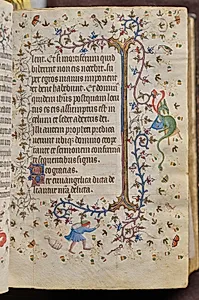 lent. Et si mortiferum quid
biberint non eis nocebit. Su
per egros manus imponent
et bene habebunt. Et dominus
quidem ihesus postquam locu
tus est eis assumptus est in
celum et sedet a dextris dei.
Illi autem profecti predica
uerunt ubique domino coope
rante et sermonem confirma
te sequentibus signis.
Deo gracias.
Per euuangelica dicta de
leantur nostra delicta.